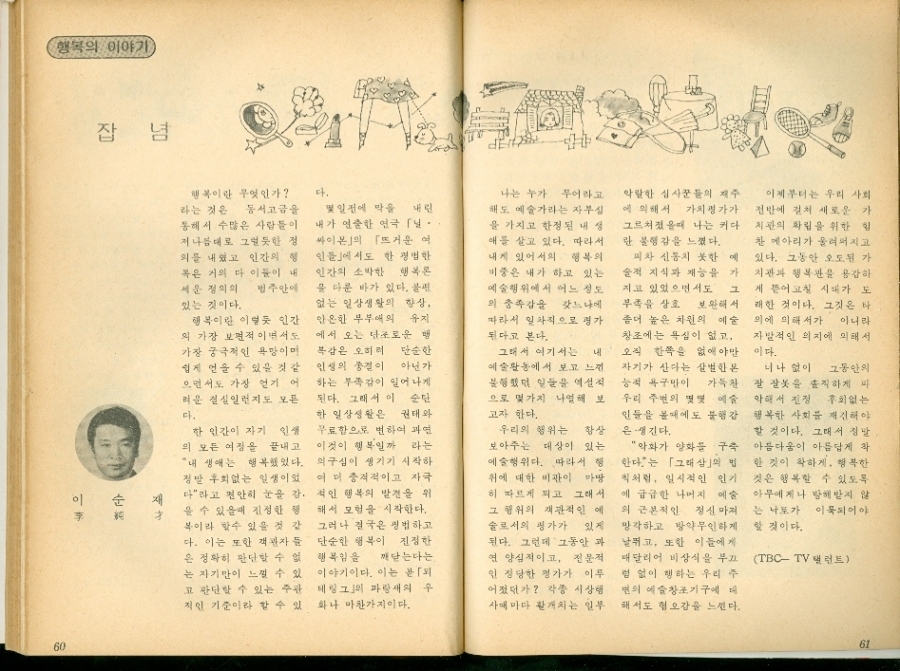 행복의 이야기
잡 념
이 순 재
李 純 才
행복이란 무엇인가?
라는 것은 동서고금을
통해서 수많은 사람들이
저나름대로 그럴듯한 정
의를 내렸고 인간의 행
복은 거의 다 이들이 내
세운 정의의 범주안에
있는 것이다.
행복이란 이렇듯 인간
의 가장 보편적이면서도
가장 궁극적인 욕망이며
쉽게 얻을 수 있을 것 같
으면서도 가장 얻기 어
려운 결실일런지도 모른
다.
한 인간이 자기 인생
의 모든 여정을 끝내고
"내 생애는 행복했었다.
정말 후회없는 일생이었
다"라고 편안히 눈을 감
을 수 있을때 진정한 행
복이라 할수 있을 것 같
다. 이는 또한 객관자들
은 정확히 판단할 수 없
는 자기만이 느낄 수 있
고 판단할 수 있는 주관
적인 기준이라 할 수 있
다.
몇일전에 막을 내린
내가 연출한 연극 「닐·
싸이몬」의 「뜨거운 여
인들」에서도 한 평범한
인간의 소박한 행복론
을 다룬 바가 있다. 불편
없는 일상생활의 향상,
안온한 부부애의 유지
에서 오는 단조로운 행
복감은 오히려 단순한
인생의 종결이 아닌가
하는 부족감이 일어나게
된다. 그래서 이 순탄
한 일상생활은 권태와
무료함으로 변하여 과연
이것이 행복일까 라는
의구심이 생기기 시작하
여 더 충격적이고 자극
적인 행복의 발견을 위
해서 모험을 시작한다.
그러나 결국은 평범하고
단순한 행복이 진정한
행복임을 깨닫는다는
이야기이다. 이는 곧 「뫼
테링그」의 파랑새의 우
화나 마찬가지이다.
나는 누가 무어라고
해도 예술가라는 자부심
을 가지고 한정된 내 생
애를 살고 있다. 따라서
내게 있어서의 행복의
비중은 내가 하고 있는
예술행위에서 어느 정도
의 충족감을 갖느냐에
따라서 일차적으로 평가
된다고 본다.
그래서 여기서는 내
예술활동에서 보고 느낀
불행했던 일들을 역설적
으로 몇가지 나열해 보
고자 한다.
우리의 행위는 항상
보아주는 대상이 있는
예술행위다. 따라서 행
위에 대한 비판이 마땅
히 따르게 되고 그래서
그 행위의 객관적인 예
술로서의 평가가 있게
된다. 그런데 그동안 과
연 양심적이고, 전문적
인 정당한 평가가 이루
어졌던가? 각종 시상행
사때마다 활개치는 일부
악랄한 심사꾼들의 재주
에 의해서 가치평가가
그르쳐졌을때 나는 커다
란 불행감을 느꼈다.
피차 신통치 못한 예
술적 지식과 재능을 가
지고 있었으면서도 그
부족을 상호 보완해서
좀더 높은 차원의 예술
창조에는 욕심이 없고,
오직 한쪽을 없애야만
자기가 산다는 살벌한본
능적 욕구만이 가득찬
우리 주변의 몇몇 예술
인들을 볼때에도 불행감
은 생긴다.
"악화가 양화를 구축
한다"는 「그래샴」의 법
칙처럼, 일시적인 인기
에 급급한 나머지 예술
의 근본적인 정신마저
망각하고 방약무인하게
날뛰고, 또한 이들에게
매달리어 비상식을 부끄
럼 없이 행하는 우리 주
변의 예술창조기구에 대
해서도 혐오감을 느낀다.
이제부터는 우리 사회
전반에 걸쳐 새로운 가
치관의 확립을 위한 힘
찬 메아리가 울려퍼지고
있다. 그동안 오도된 가
치관과 행복관을 용감하
게 뜯어고칠 시대가 도
래한 것이다. 그것은 타
의에 의해서가 아니라
자발적인 의지에 의해서
이다.
너나 없이 그동안의
잘 잘못을 솔직하게 파
악해서 진정 후회없는
행복한 사회를 재건해야
할 것이다. 그래서 정말
아름다움이 아름답게 착
한 것이 착하게, 행복한
것은 행복할 수 있도록
아무에게나 방해받지 않
는 낙토가 이룩되어야
할 것이다.
(TBC— TV탤런트)
60
61